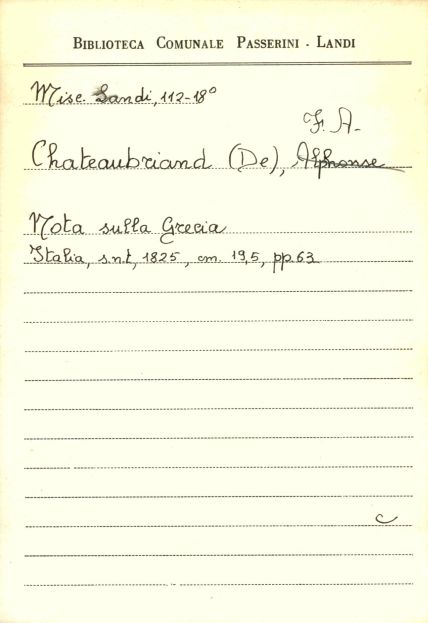 BIBLIOTECA COMUNALE PASSERINI - LANDI
Misc. Landi, 112-18°
F. A.
Chateaubriand (De), Alphonse
Nota sulla Grecia
Italia, s.n.t, 1825, cm. 19,5, pp. 63
c